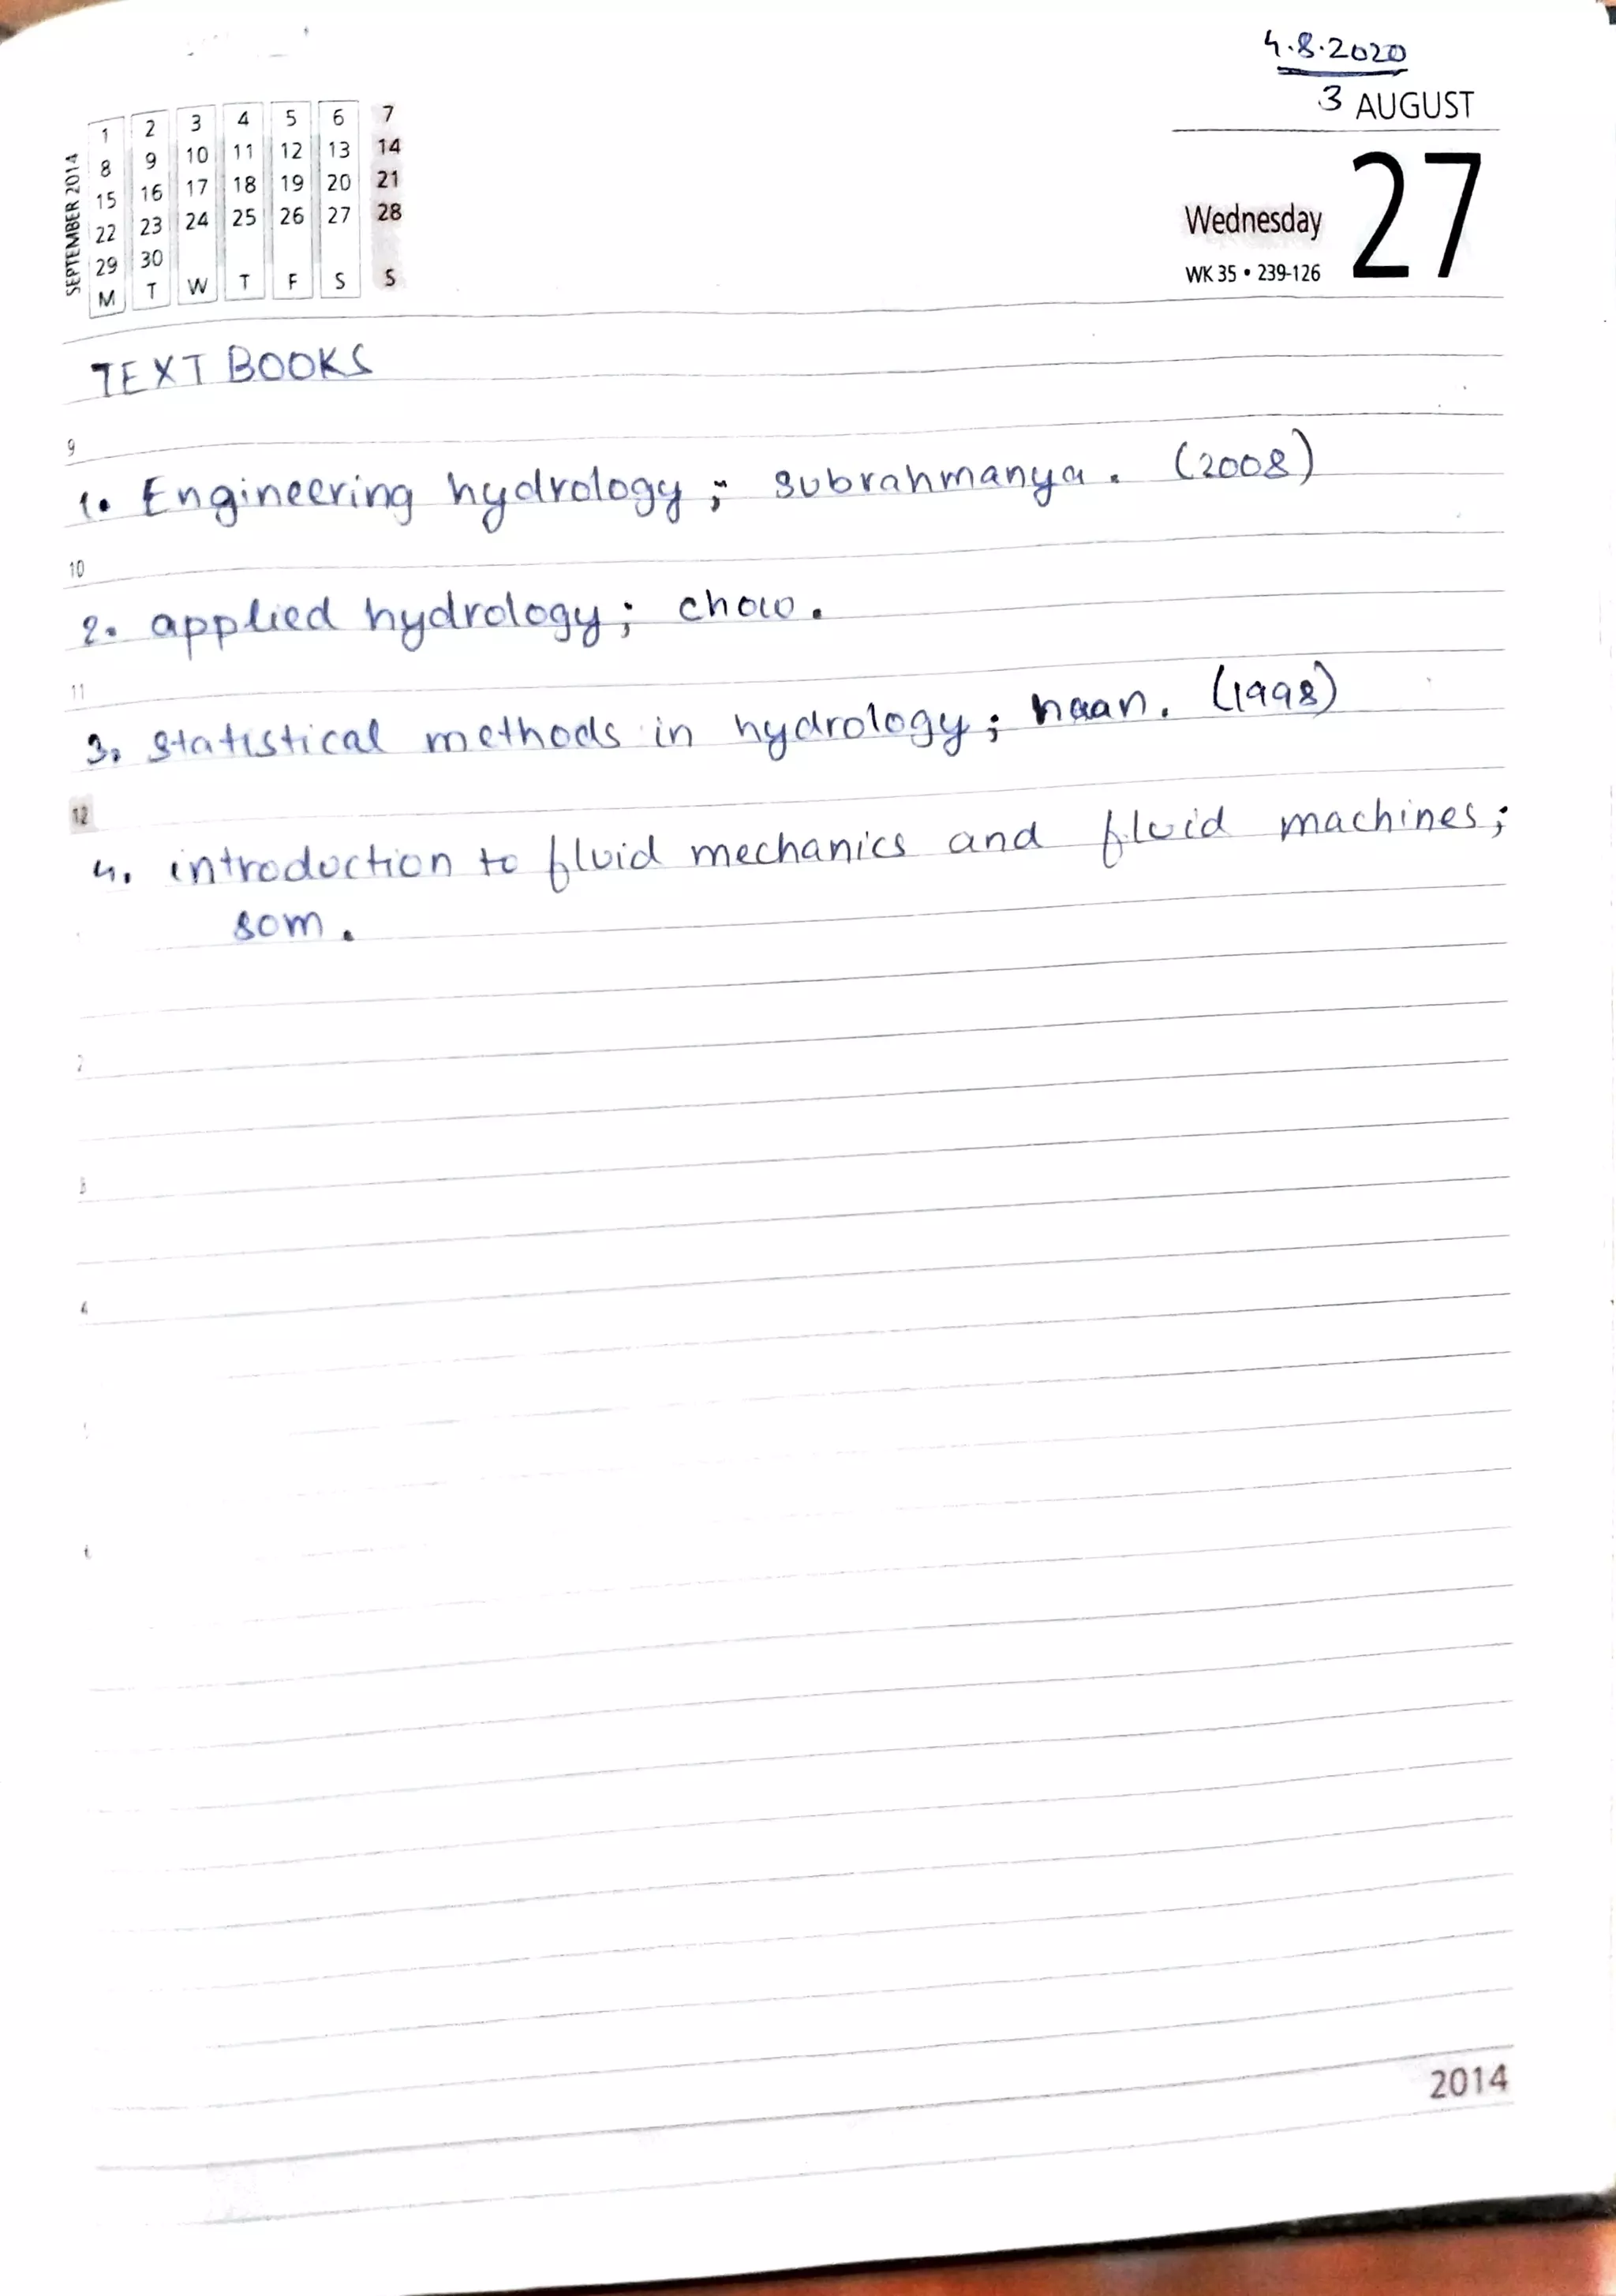 4.8.2020
3 AUGUST
27
Wednesday
WK 35 • 239-126
SEPTEMBER 2014
1 2 3 4 5 6 7
8 9 10 11 12 13 14
15 16 17 18 19 20 21
22 23 24 25 26 27 28
29 30
M T W T F S S
TEXT BOOKS
9
1. Engineering hydrology; subrahmanya. (2008)
10
2. applied hydrology; chow.
11
3. statistical methods in hydrology; haan. (1998)
12
4. introduction to fluid mechanics and fluid machines;
som.
2
3
4
2014